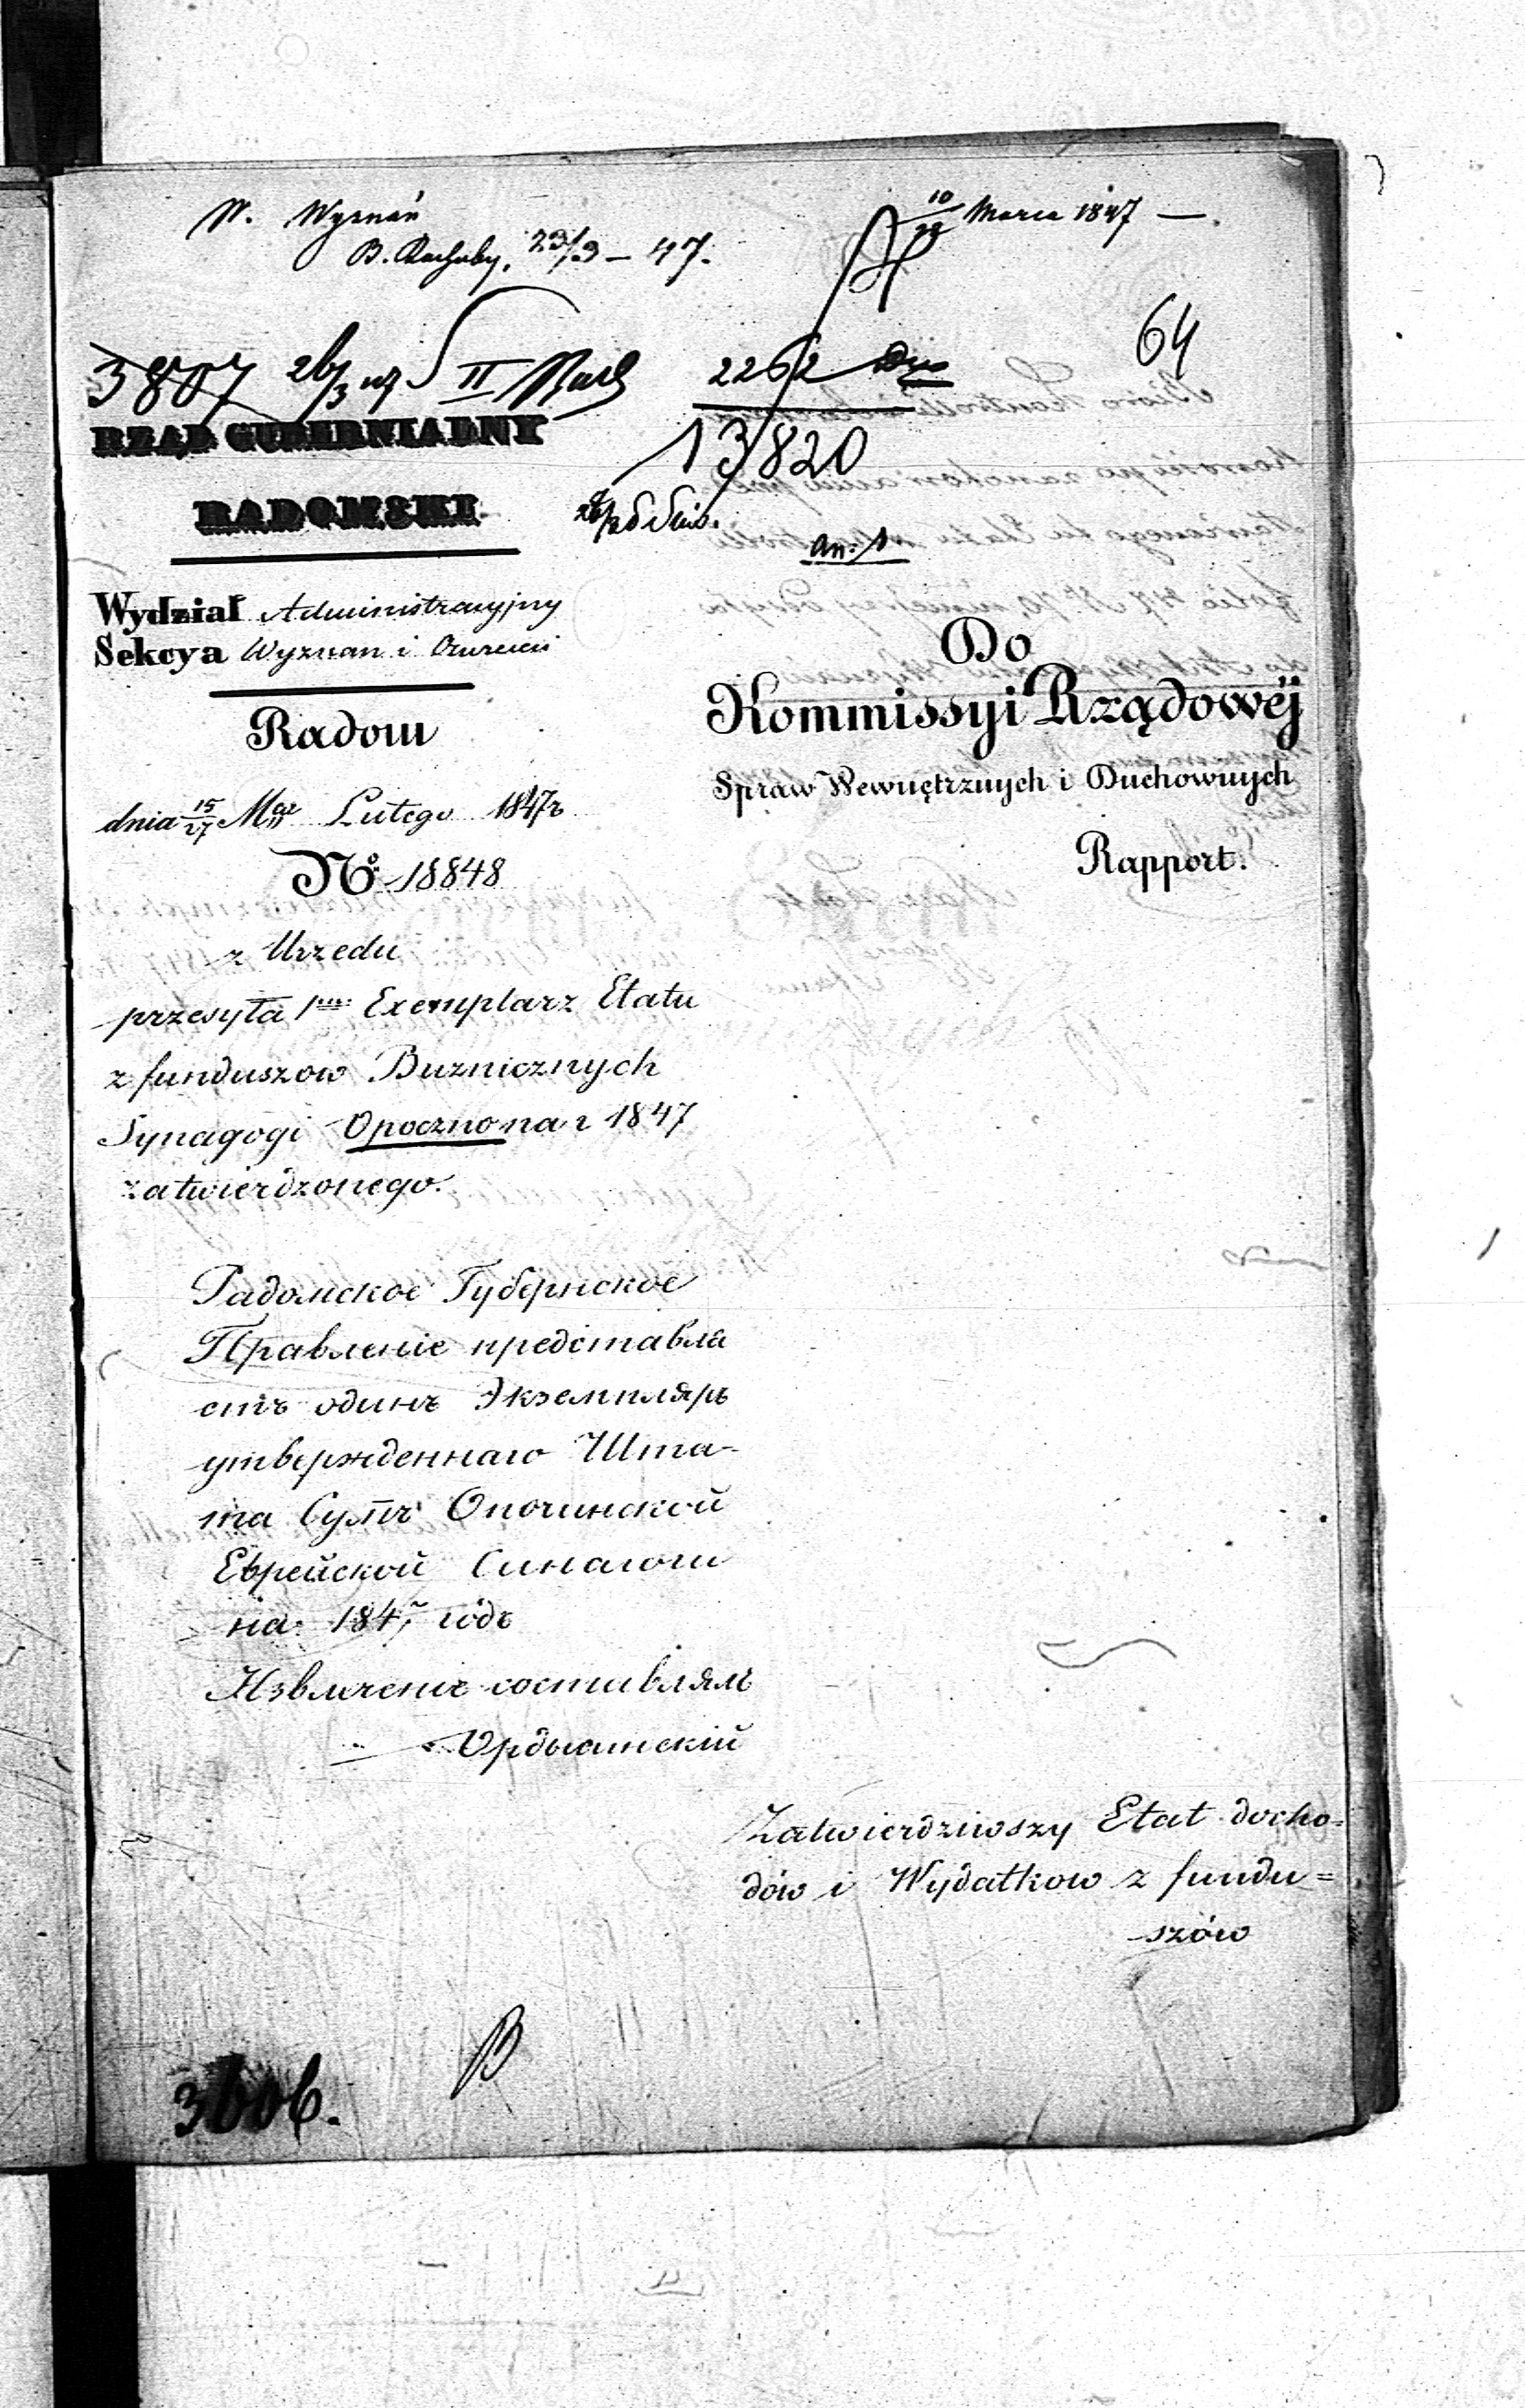 W. Wyznań
B. Rachuby, 23/3 – 47.
10/22 Marca 1847 —
64
3807 26/3 47 II Rach
2262
13820
an: 1
RZĄD GUBERNIALNY
RADOMSKI
Wydział Administracyjny
Sekcya Wyznan i
Radom
dnia 15/27 Lutego 1847 r
No. 18848
z Urzedu
przesyła 1en Exemplarz Etatu
z funduszow Buznicznych
Synagogi Opoczno na r 1847
zatwierdzonego.
Радомское Губернское
Правленіе представля
етъ одинъ Экземпляръ
утвержденнаго Шта-
та Суммъ Опочинской
Еврейской Синагоги
на 1847 годъ
Извлеченіе составлялъ
Do
Kommissyi Rządowéj
Spraw Wewnętrznych i Duchownych
Rapport.
Zatwierdziwszy Etat docho=
dów i Wydatkow z fundu=
szów
3606.